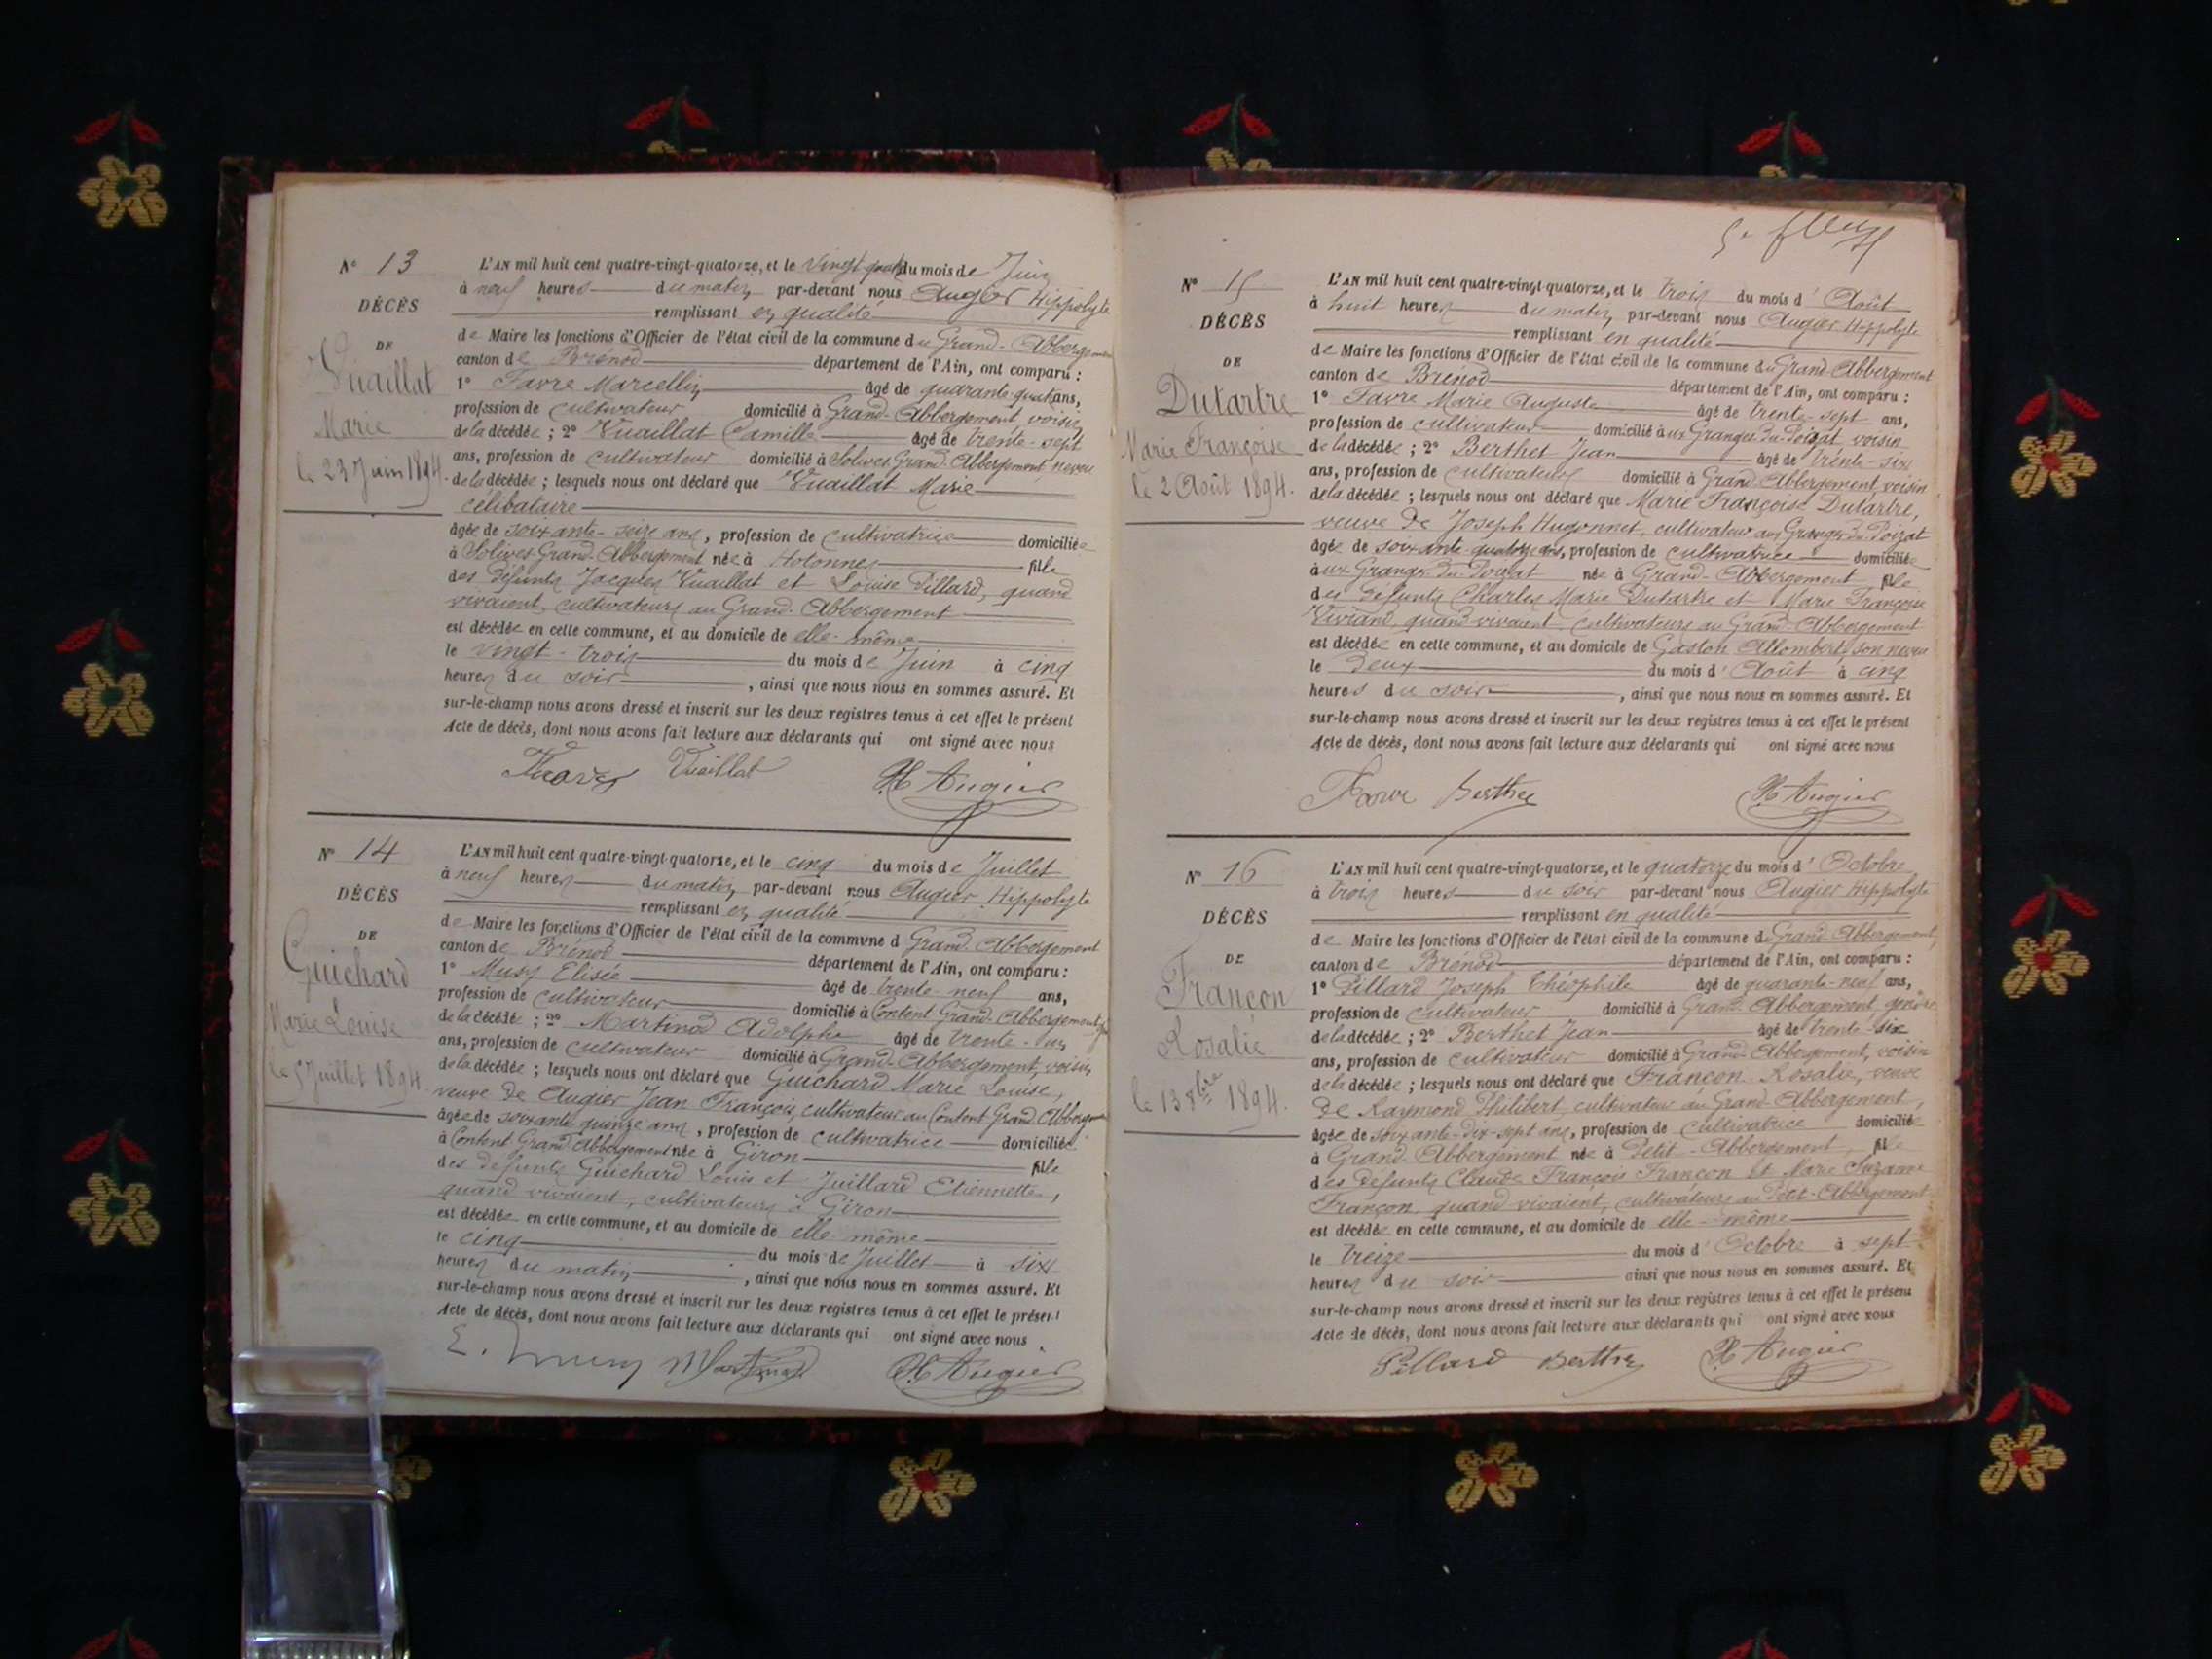 N° 13
DÉCÈS
DE
Vuaillat
Marie
le 23 Juin 1894.
L'AN mil huit cent quatre-vingt-quatorze, et le vingt quatre du mois de Juin
à neuf heures du matin par-devant nous Augier Hippolyte
remplissant en qualité
de Maire les fonctions d'Officier de l'état civil de la commune du Grand-Abbergement
canton de Brénod département de l'Ain, ont comparu :
1° Favre Marcellin âgé de quarante quatre ans,
profession de cultivateur domicilié à Grand-Abbergement voisin
de la décédée ; 2° Vuaillat Camille âgé de trente-sept
ans, profession de cultivateur domicilié à Solives Grand-Abbergement, neveu
de la décédée ; lesquels nous ont déclaré que Vuaillat Marie
célibataire
âgée de soixante-seize ans, profession de cultivatrice domiciliée
à Solives Grand-Abbergement née à Hotonnes fille
des défunts Jacques Vuaillat et Louise Pillard, quand
vivaient, cultivateurs au Grand-Abbergement
est décédée en cette commune, et au domicile de elle-même
le vingt-trois du mois de Juin à cinq
heures du soir, ainsi que nous nous en sommes assuré. Et
sur-le-champ nous avons dressé et inscrit sur les deux registres tenus à cet effet le présent
Acte de décès, dont nous avons fait lecture aux déclarants qui ont signé avec nous
Favre Vuaillat H Augier
N° 14
DÉCÈS
DE
Guichard
Marie Louise
le 5 Juillet 1894
L'AN mil huit cent quatre-vingt-quatorze, et le cinq du mois de Juillet
à neuf heures du matin par-devant nous Augier Hippolyte
remplissant en qualité
de Maire les fonctions d'Officier de l'état civil de la commune d Grand-Abbergement
canton de Brénod département de l'Ain, ont comparu :
1° Musy Elisée âgé de trente-neuf ans,
profession de cultivateur domicilié à Content Grand-Abbergement
de la décédée ; 2° Martinod Adolphe âgé de trente-un
ans, profession de cultivateur domicilié à Grand-Abbergement, voisin
de la décédée ; lesquels nous ont déclaré que Guichard Marie Louise,
veuve de Augier Jean François, cultivateur au Content Grand-Abbergement
âgée de soixante quinze ans, profession de cultivatrice domiciliée
à Content Grand-Abbergement née à Giron fille
des défunts Guichard Louis et Juillard Etiennette,
quand vivaient, cultivateurs à Giron
est décédée en cette commune, et au domicile de elle-même
le cinq du mois de Juillet à six
heures du matin, ainsi que nous nous en sommes assuré. Et
sur-le-champ nous avons dressé et inscrit sur les deux registres tenus à cet effet le présent
Acte de décès, dont nous avons fait lecture aux déclarants qui ont signé avec nous
E. Musy Martinod H Augier
N° 15
DÉCÈS
DE
Dutartre
Marie Françoise
le 2 Août 1894.
L'AN mil huit cent quatre-vingt-quatorze, et le trois du mois d'Août
à huit heures du matin par-devant nous Augier Hippolyte
remplissant en qualité
de Maire les fonctions d'Officier de l'état civil de la commune du Grand-Abbergement
canton de Brénod département de l'Ain, ont comparu :
1° Favre Marie Auguste âgé de trente-sept ans,
profession de cultivateur domicilié aux Granges du Poizat voisin
de la décédée ; 2° Berthet Jean âgé de trente-six
ans, profession de cultivateur domicilié à Grand-Abbergement, voisin
de la décédée ; lesquels nous ont déclaré que Marie Françoise Dutartre,
veuve de Joseph Hugonnet, cultivateur aux Granges du Poizat
âgée de soixante-quatorze ans, profession de cultivatrice domiciliée
aux Granges du Poizat née à Grand-Abbergement fille
des défunts Charles Marie Dutartre et Marie Françoise
Viviand quand vivaient, cultivateurs au Grand-Abbergement
est décédée en cette commune, et au domicile de Gaston Allombert, son neveu
le deux du mois d'Août à cinq
heures du soir, ainsi que nous nous en sommes assuré. Et
sur-le-champ nous avons dressé et inscrit sur les deux registres tenus à cet effet le présent
Acte de décès, dont nous avons fait lecture aux déclarants qui ont signé avec nous
Favre Berthet H Augier
N° 16
DÉCÈS
DE
Françon
Rosalie
le 13 8bre 1894.
L'AN mil huit cent quatre-vingt-quatorze, et le quatorze du mois d'Octobre
à trois heures du soir par-devant nous Augier Hippolyte
remplissant en qualité
de Maire les fonctions d'Officier de l'état civil de la commune du Grand-Abbergement,
canton de Brénod département de l'Ain, ont comparu :
1° Pillard Joseph Théophile âgé de quarante-neuf ans,
profession de cultivateur domicilié à Grand-Abbergement, gendre
de la décédée ; 2° Berthet Jean âgé de trente-six
ans, profession de cultivateur domicilié à Grand-Abbergement, voisin
de la décédée ; lesquels nous ont déclaré que Françon Rosalie, veuve
de Raymond Philibert, cultivateur au Grand-Abbergement,
âgée de soixante-dix-sept ans, profession de cultivatrice domiciliée
à Grand-Abbergement née à Petit-Abbergement, fille
des défunts Claude François Françon et Marie Suzanne
Françon quand vivaient, cultivateurs au Petit-Abbergement
est décédée en cette commune, et au domicile de elle-même
le treize du mois d'Octobre à sept
heures du soir ainsi que nous nous en sommes assuré. Et
sur-le-champ nous avons dressé et inscrit sur les deux registres tenus à cet effet le présent
Acte de décès, dont nous avons fait lecture aux déclarants qui ont signé avec nous
Pillard Berthet H Augier